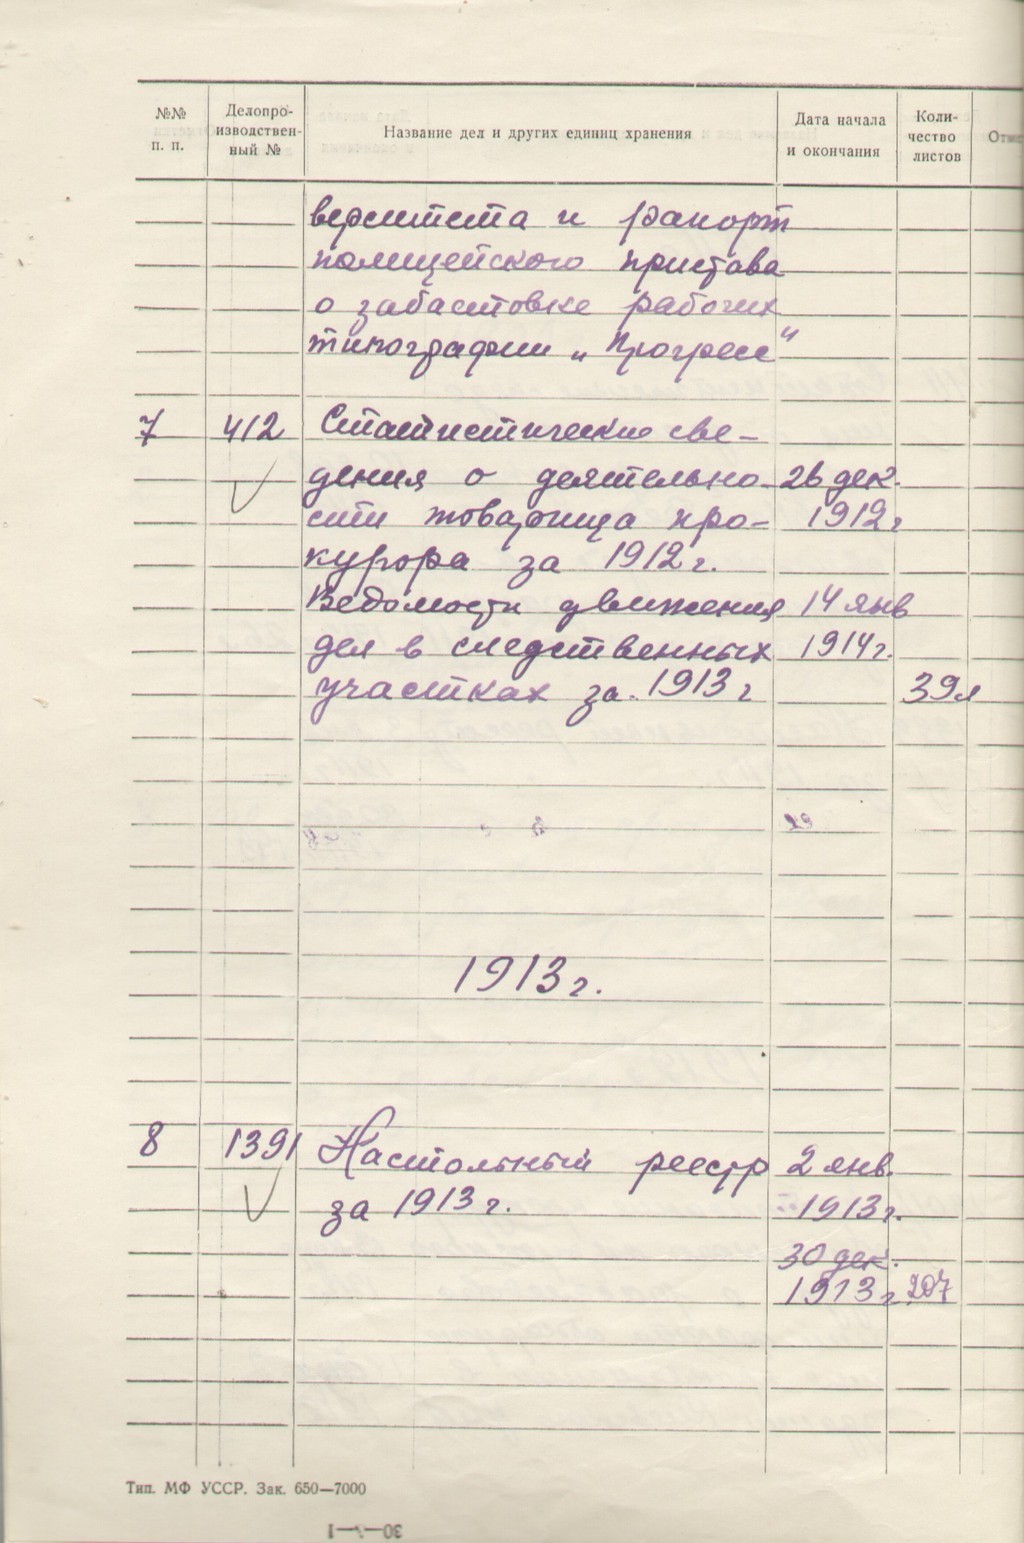 №№ п. п.
Делопро-
изводствен-
ный №
Название дел и других единиц хранения
Дата начала
и окончания
Коли-
чество
листов
верситета и рапорт
полицейского пристава
о забастовке рабочих
типографии „Прогресс“
7 412 Статистические све-
дения о деятельно- 26 дек.
сти товарища про- 1912 г
курора за 1912 г.
Ведомости движения 14 янв
дел в следственных 1914 г.
участках за. 1913 г 39 л
1913 г.
8 1391 Настольный реестр 2 янв.
за 1913 г. 1913 г.
30 дек.
1913 г. 207
Тип. МФ УССР. Зак. 650—7000